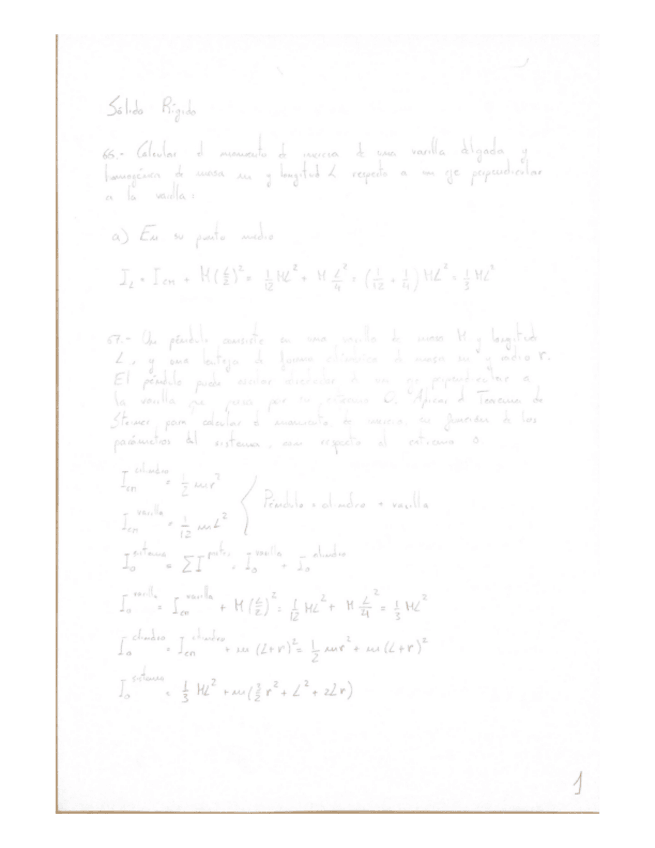 Sólido Rígido
66.- Calcular el momento de inercia de una varilla delgada y
homogénea de masa m y longitud L respecto a un eje perpendicular
a la varilla:
a) En su punto medio
I_L = I_cm + M(L/2)² = 1/12 ML² + M L²/4 = (1/12 + 1/4) ML² = 1/3 ML²
67.- Un péndulo consiste en una varilla de masa M y longitud
L, y una lenteja de forma cilíndrica de masa m y radio r.
El péndulo puede oscilar alrededor de un eje perpendicular a
la varilla que pasa por su extremo O. Aplicar el Teorema de
Steiner para calcular el momento de inercia en función de los
parámetros del sistema, con respecto al extremo O.
I_cm^cilindro = 1/2 mr²
Péndulo = cilindro + varilla
I_cm^varilla = 1/12 mL²
I_o^sistema = ΣI = I_o^varilla + I_o^cilindro
I_o^varilla = I_cm^varilla + M(L/2)² = 1/12 ML² + M L²/4 = 1/3 ML²
I_o^cilindro = I_cm^cilindro + m(L+r)² = 1/2 mr² + m(L+r)²
I_o^sistema = 1/3 ML² + m(3/2 r² + L² + 2Lr)
1